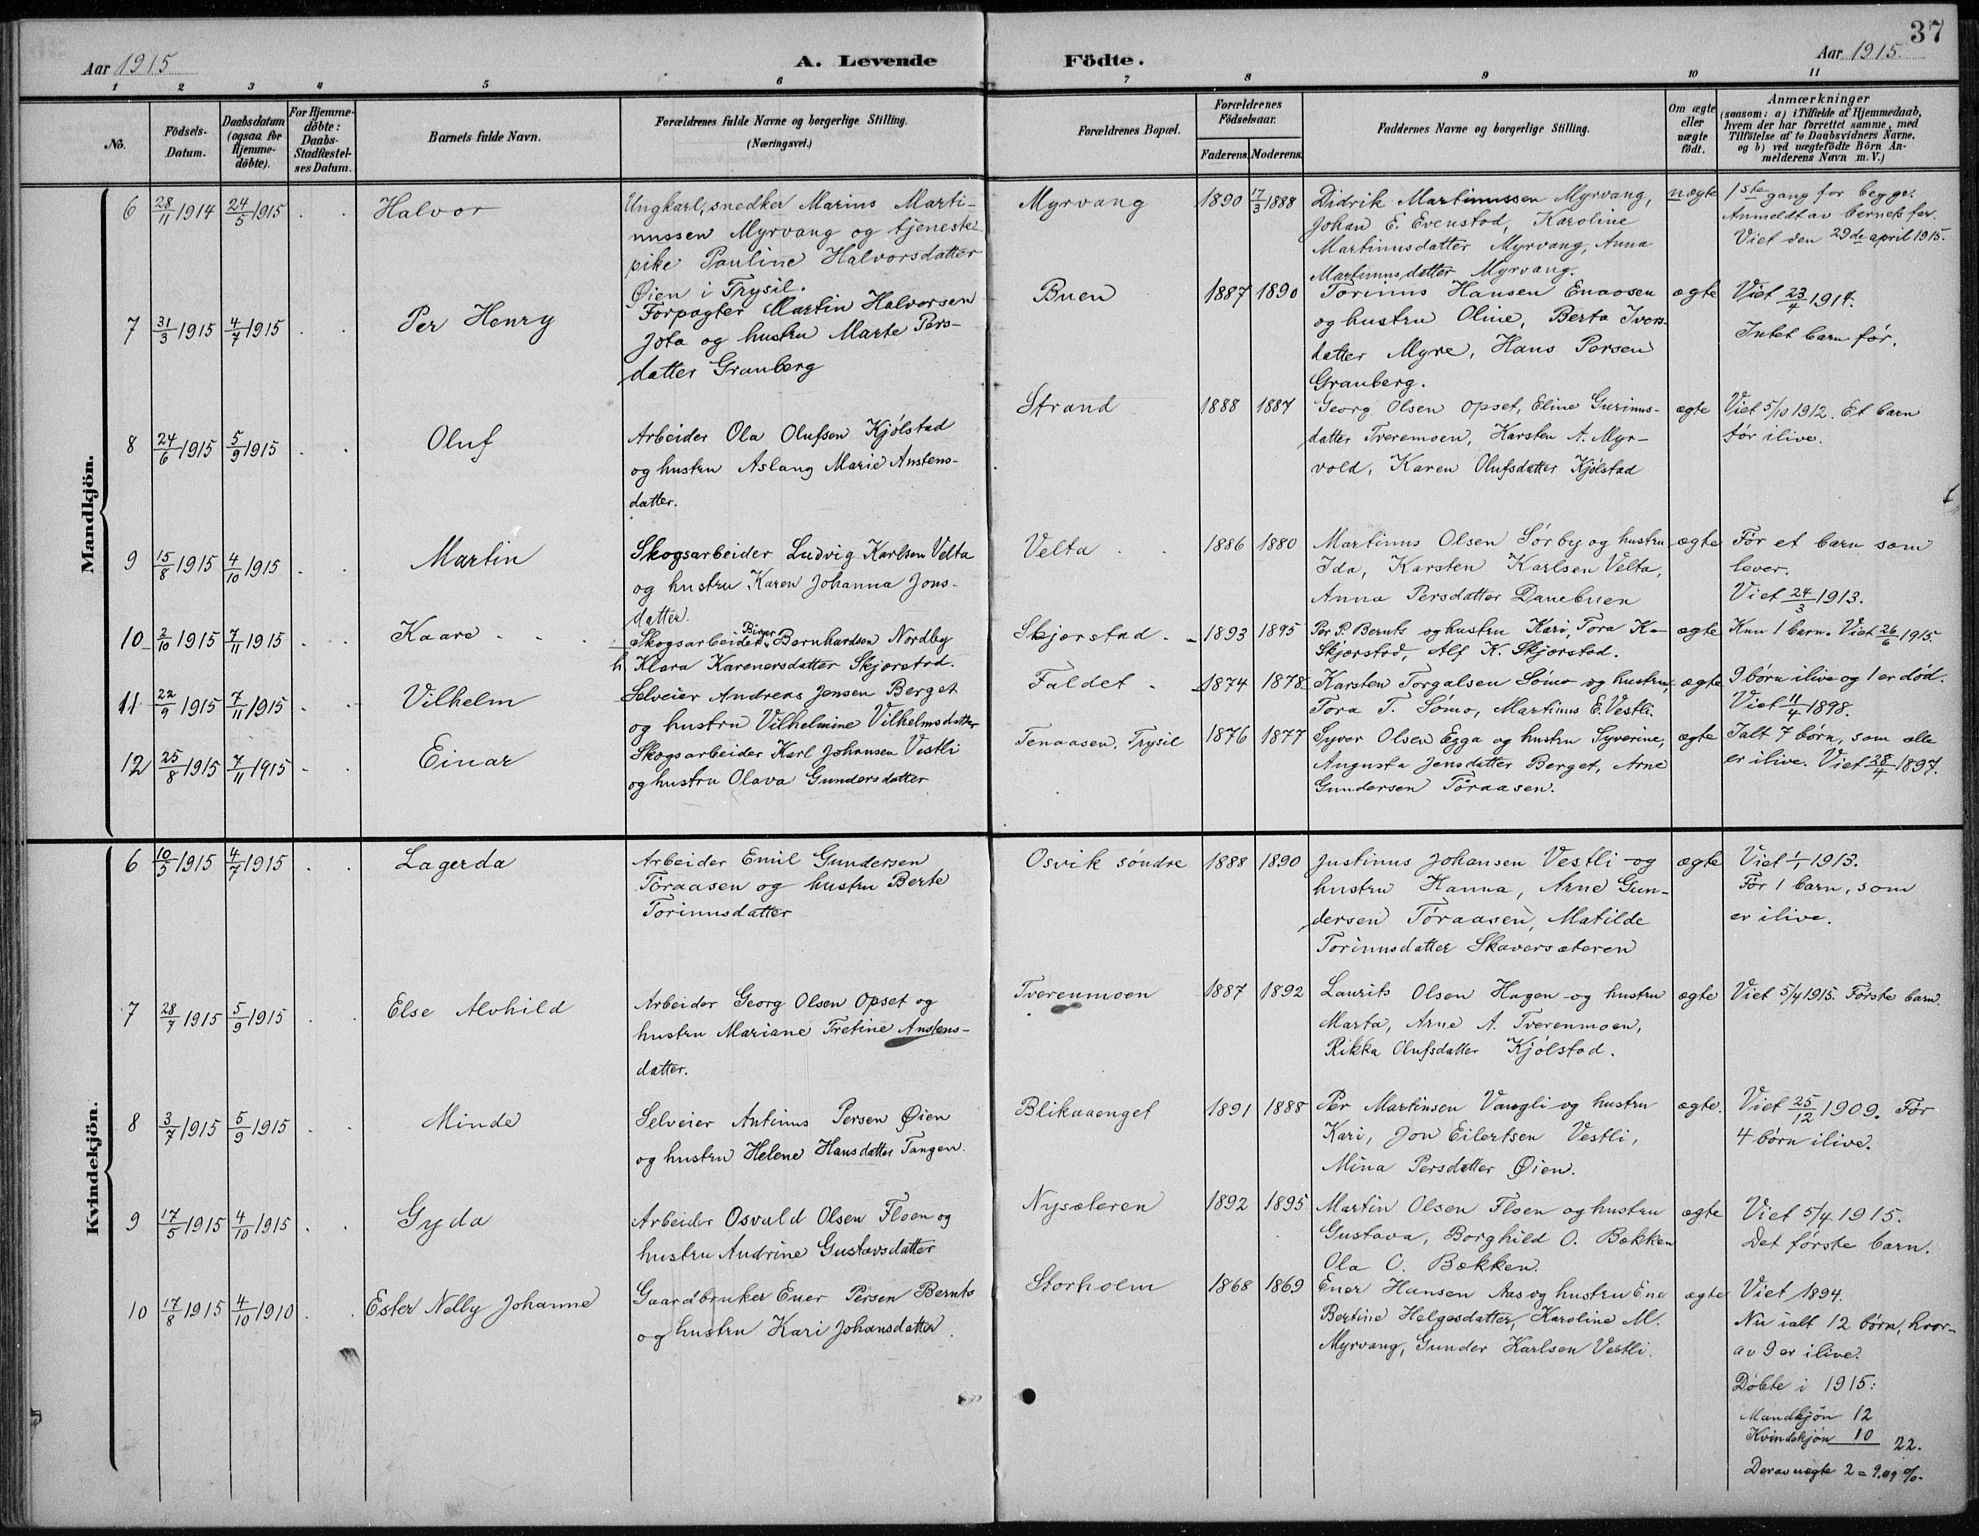 37
Aar 1915
A. Levende
Födte.
Aar 1915.
1 2 3 4 5 6 7 8 9 10 11
No.
Födsels-
Datum.
Daabsdatum
(ogsaa for
Hjemme-
döbte).
For Hjemme-
döbte:
Daabs-
Stadfæstel-
ses Datum.
Barnets fulde Navn.
Forældrenes fulde Navne og borgerlige Stilling.
(Næringsvei.)
Forældrenes Bopæl.
Forældrenes
Födselsaar.
Faderens. Moderens.
Faddernes Navne og borgerlige Stilling.
Om ægte
eller
uægte
födt.
Anmærkninger
(saasom: a) i Tilfælde af Hjemmedaab,
hvem der har forrettet samme, med
Tilföielse af to Daabsvidners Navne.
og b) ved uægtefödte Börn An-
melderens Navn m. V.)
Mandkjön.
6 28/11 1914 24/5 1915 Halvor
Ungkarl, snedker Marius Marti-
nussen Myrvang og tjeneste-
pike Pauline Halvorsdatter
Øien i Trysil.
Myrvang 1890 17/3 1888
Didrik Martinussen Myrvang,
Johan E. Evenstad, Karoline
Martinusdatter Myrvang, Anna
Martinusdatter Myrvang.
uægte
1ste gang for begge.
Anmeldt av barnets far.
Viet den 29de april 1915.
7 31/3 1915 4/7 1915 Per Henry
Forpagter Martin Halvorsen
Jota og hustru Marte Pers-
datter Granberg
Buen 1887 1890
Torinus Hansen Enaasen
og hustru Oline, Berta Ivers-
datter Myre, Hans Persen
Granberg.
ægte
Viet 23/4 1914.
Intet barn før.
8 24/6 1915 5/9 1915 Oluf
Arbeider Ola Olufsen Kjølstad
og hustru Aslaug Marie Anstens-
datter.
Strand 1888 1887
Georg Olsen Opset, Eline Gurinus-
datter Tveremoen, Karsten A. Myr-
vold, Karen Olufsdatter Kjølstad
ægte
Viet 5/10 1912. Et barn
før ilive.
9 15/8 1915 4/10 1915 Martin
Skogsarbeider Ludvig Karlsen Velta
og hustru Karen Johanna Jons-
datter.
Velta 1886 1880
Martinus Olsen Sørby og hustru
Ida, Karsten Karlsen Velta,
Anna Persdatter Danebuen
ægte
Før et barn som
lever.
Viet 24/3 1913.
10 2/10 1915 7/11 1915 Kaare
Birger
Skogsarbeider Bernhardsen Nordby
h. Klara Karenersdatter Skjærstad.
Skjærstad 1893 1895
Per P. Bernts og hustru Kari, Tora K-
Skjærstad, Alf K. Skjærstad.
ægte
Kun 1 barn. Viet 26/6 1915.
11 22/9 1915 7/11 1915 Vilhelm
Selveier Andreas Jensen Berget
og hustru Vilhelmine Vilhelmsdatter
Faldet 1874 1878
Karsten Torgalsen Sømo og hustru
Tora T. Sømo, Martinus E. Vestli.
ægte
9 børn ilive og 1 er død.
Viet 11/4 1898.
12 25/8 1915 7/11 1915 Einar
Skogsarbeider Karl Johansen Vestli
og hustru Olava Gundersdatter
Tenaasen, Trysil 1876 1877
Syver Olsen Egga og hustru Syverine,
Augusta Jensdatter Berget, Arne
Gundersen Tøraasen.
ægte
Ialt 7 børn, som alle
er ilive. Viet 28/4 1897.
Kvindekjön.
6 10/5 1915 4/7 1915 Lagerda
Arbeider Emil Gundersen
Tøraasen og hustru Berte
Torinusdatter
Osvik søndre 1888 1890
Justinus Johansen Vestli og
hustru Hanna, Arne Gun-
dersen Tøraasen, Matilde
Torinusdatter Skaversæteren
ægte
Viet 1/1 1913.
Før 1 barn, som
er ilive.
7 28/7 1915 5/9 1915 Else Alvhild
Arbeider Georg Olsen Opset og
hustru Mariane Tretine Anstens-
datter.
Tverenmoen 1887 1892
Laurits Olsen Hagen og hustru
Marta, Arne A. Tverenmoen,
Rikka Olufsdatter Kjølstad.
ægte
Viet 5/4 1915. Første barn.
8 3/7 1915 5/9 1915 Minda
Selveier Antinus Persen Øien
og hustru Helene Hansdatter Tangen.
Blikaaenget 1891 1888
Per Martinsen Vangli og hustru
Kari, Jon Eilertsen Vestli,
Mina Persdatter Øien.
ægte.
Viet 25/12 1909. Før
4 børn ilive.
9 17/5 1915 4/10 1915 Gyda
Arbeider Osvald Olsen Floen og
hustru Andrine Gustavsdatter
Nysæteren 1892 1895
Martin Olsen Floen og hustru
Gustava, Borghild O. Bækken
Ola O. Bækken.
ægte
Viet 5/4 1915.
Det første barn.
10 17/8 1915 4/10 1910 Ester Nelly Johanne
Gaardbruker Ener Persen Bernts
og hustru Kari Johansdatter.
Storholm 1868 1869
Ener Hansen Aas og hustru Ene
Bertine Helgesdatter, Karoline M.
Myrvang, Gunder Karlsen Vestli.
ægte
Viet 1894.
Nu ialt 12 børn, hvor-
av 9 er ilive.
Døbte i 1915:
Mandkjøn 12
Kvindekjøn 10 22.
Derav uægte 2 = 9,09 %.